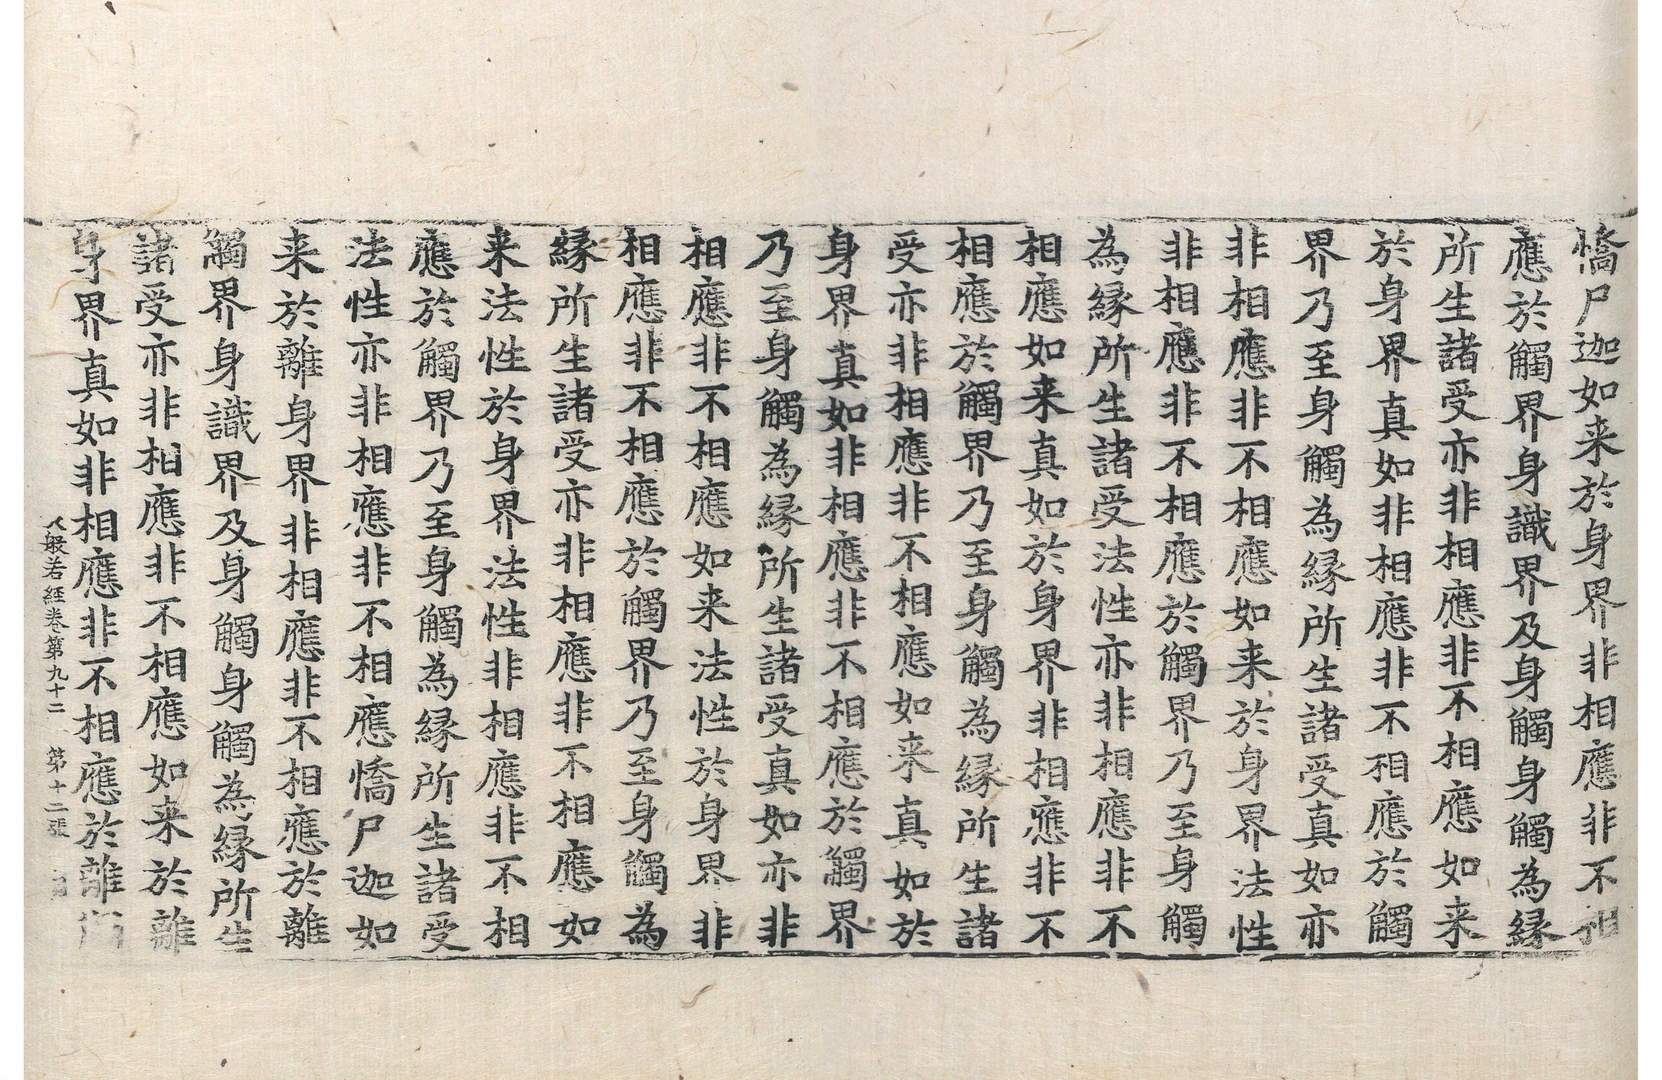 憍尸迦如来於身界非相應非不相
應於觸界身識界及身觸身觸為縁
所生諸受亦非相應非不相應如来
於身界真如非相應非不相應於觸
界乃至身觸為縁所生諸受真如亦
非相應非不相應如来於身界法性
非相應非不相應於觸界乃至身觸
為縁所生諸受法性亦非相應非不
相應如来真如於身界非相應非不
相應於觸界乃至身觸為縁所生諸
受亦非相應非不相應如来真如於
身界真如非相應非不相應於觸界
乃至身觸為縁所生諸受真如亦非
相應非不相應如来法性於身界非
相應非不相應於觸界乃至身觸為
縁所生諸受亦非相應非不相應如
来法性於身界法性非相應非不相
應於觸界乃至身觸為縁所生諸受
法性亦非相應非不相應憍尸迦如
来於離身界非相應非不相應於離
觸界身識界及身觸身觸為縁所生
諸受亦非相應非不相應如来於離
身界真如非相應非不相應於離觸
大般若經卷第九十二 第十二張